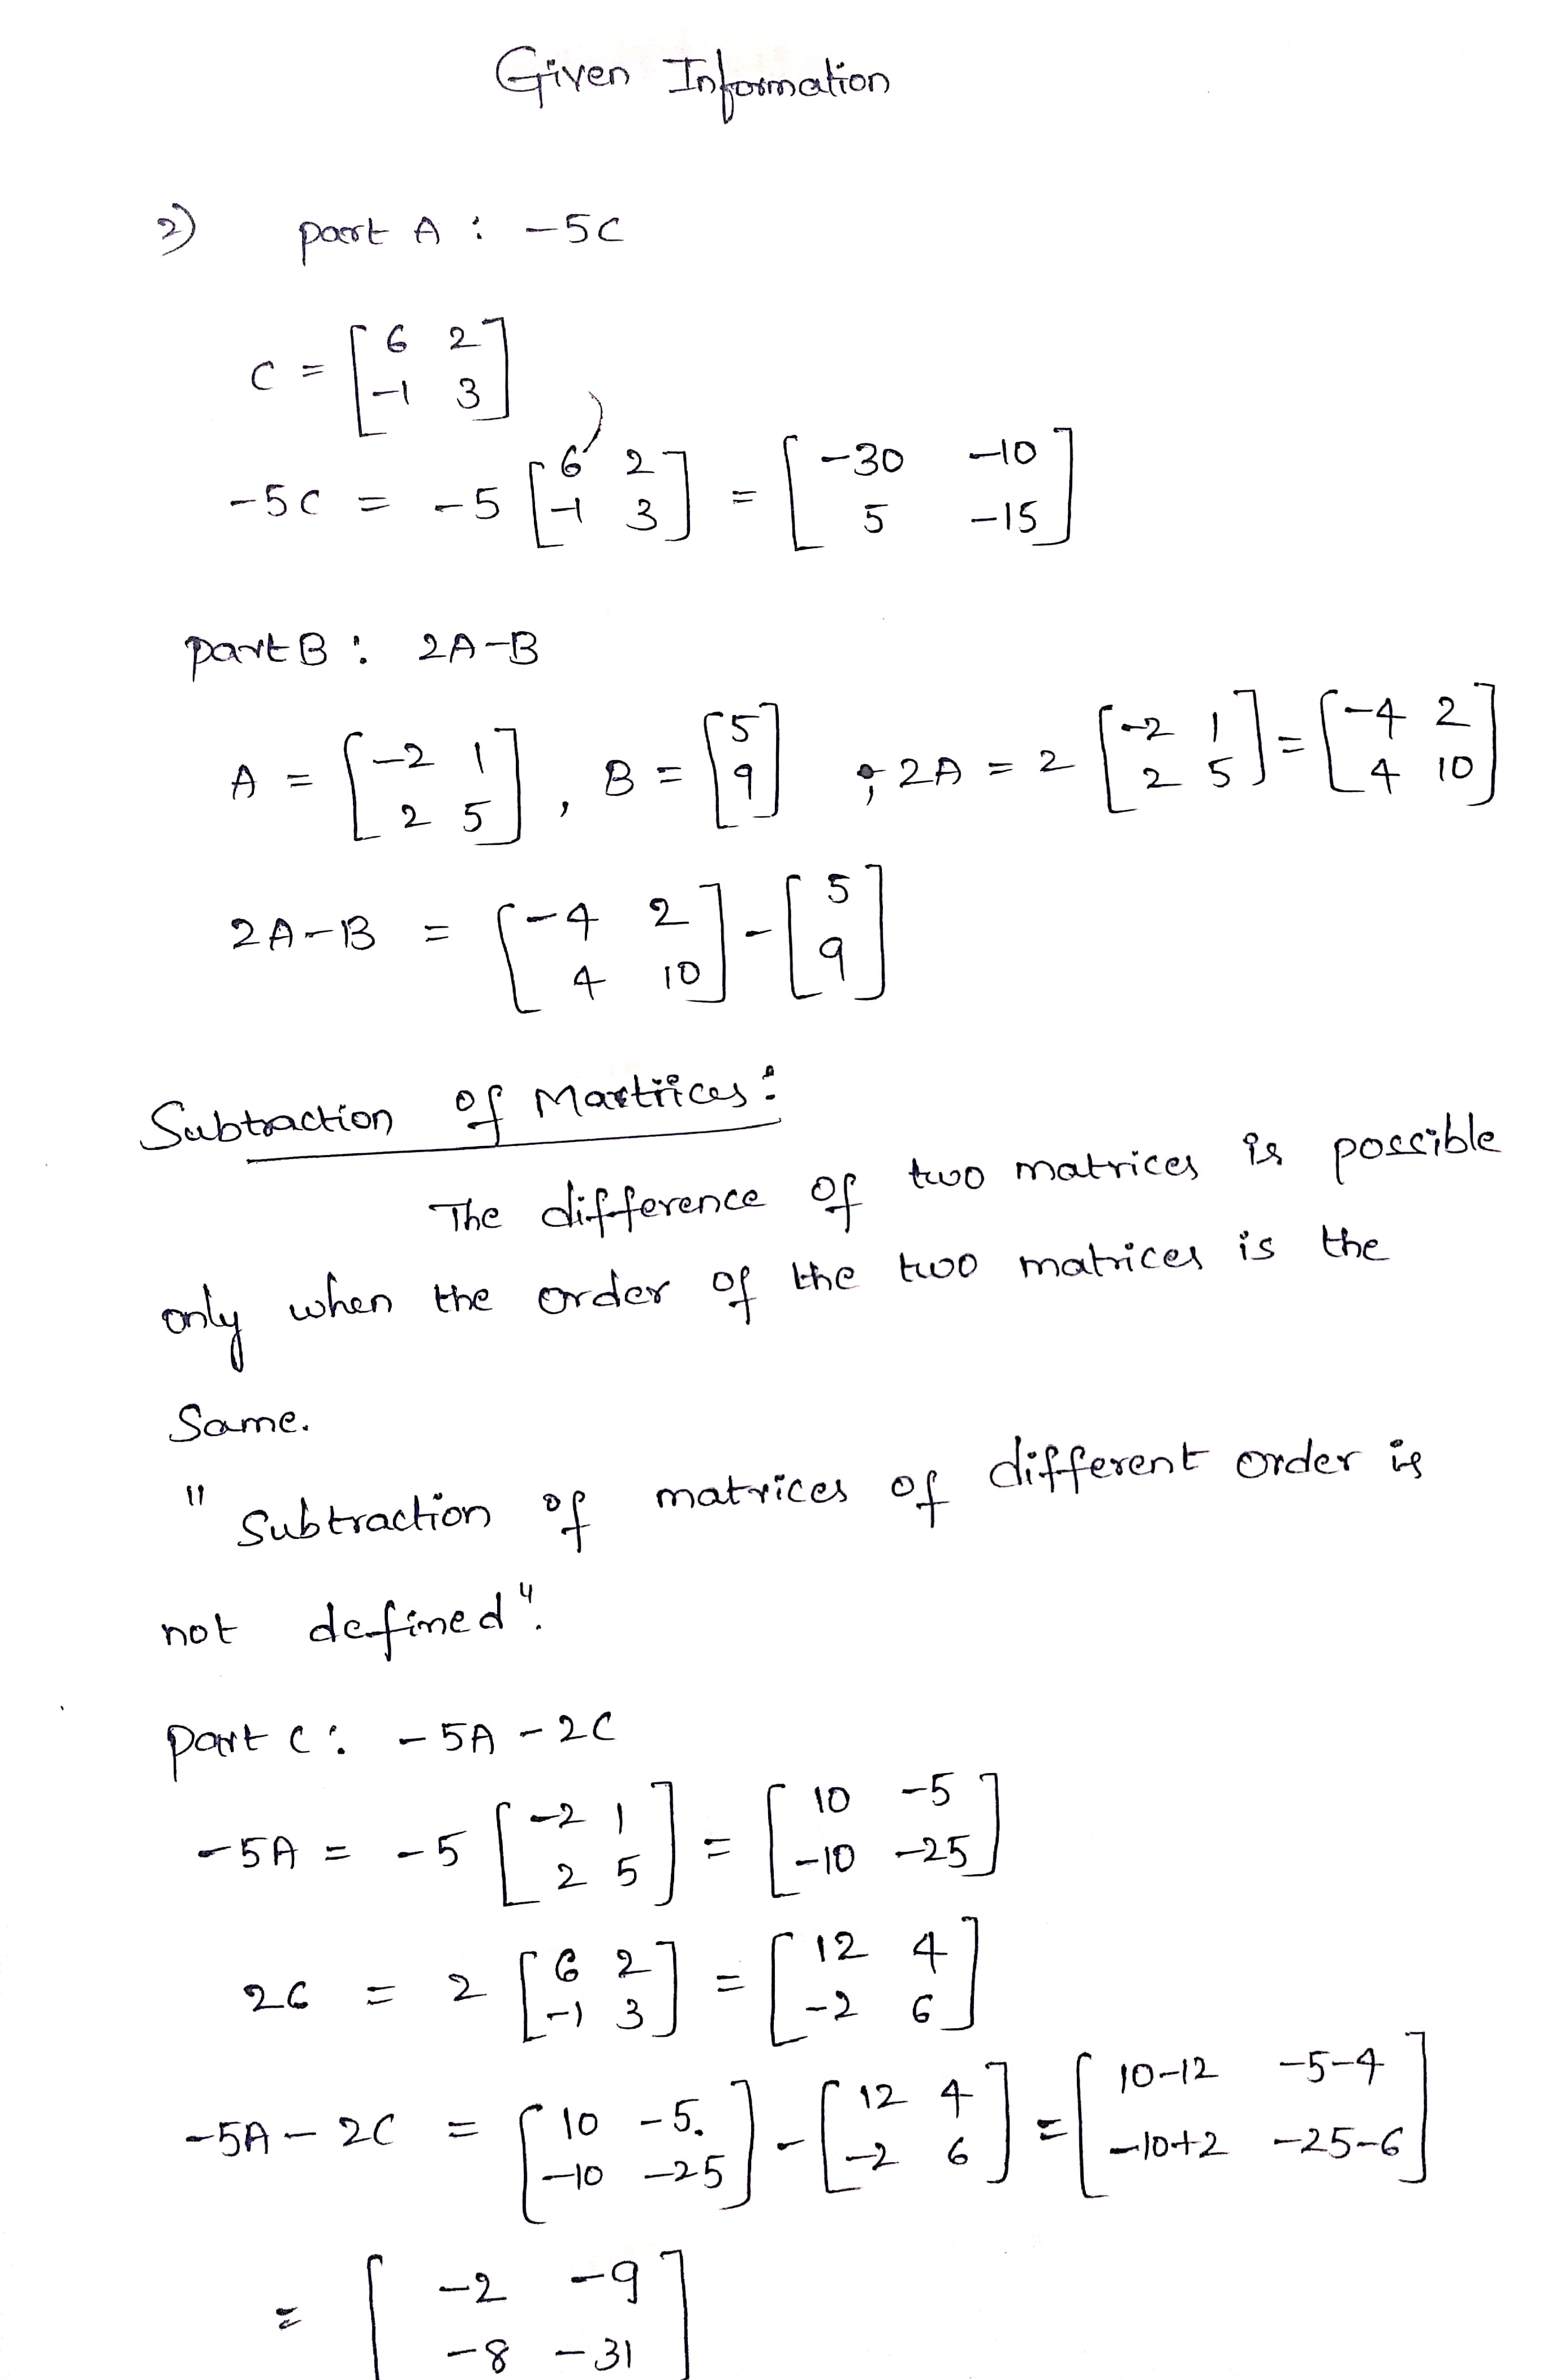 Given Information
2) part A : -5C
C = [6 2
-1 3]
-5C = -5 [6 2
-1 3] = [-30 -10
5 -15]
part B : 2A-B
A = [-2 1
2 5] , B = [5
9] ; 2A = 2 [-2 1
2 5] = [-4 2
4 10]
2A-B = [-4 2
4 10] - [5
9]
Subtraction of Matrices :
The difference of two matrices is possible
only when the order of the two matrices is the
Same.
" Subtraction of matrices of different order is
not defined".
part C : -5A - 2C
-5A = -5 [-2 1
2 5] = [10 -5
-10 -25]
2C = 2 [6 2
-1 3] = [12 4
-2 6]
-5A - 2C = [10 -5.
-10 -25] - [12 4
-2 6] = [10-12 -5-4
-10+2 -25-6]
= [-2 -9
-8 -31]